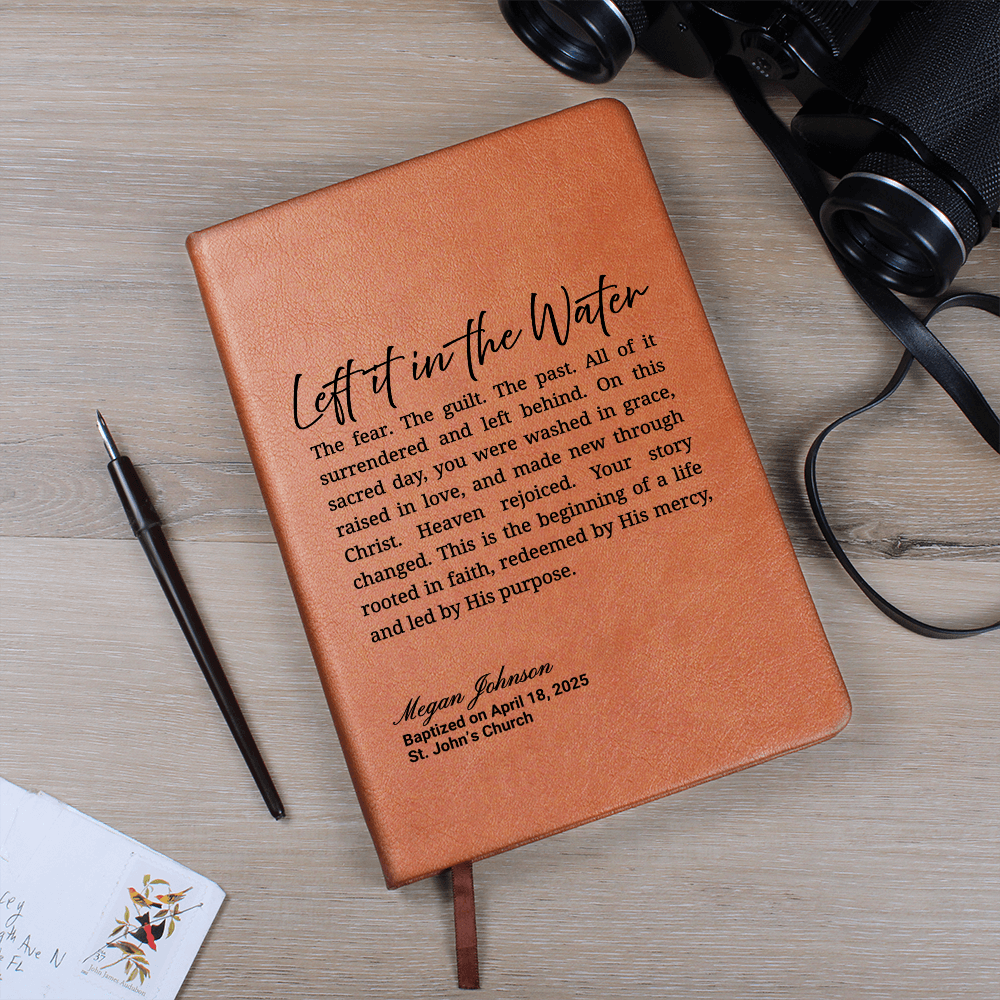 Left it in the Water
The fear. The guilt. The past. All of it
surrendered and left behind. On this
sacred day, you were washed in grace,
raised in love, and made new through
Christ. Heaven rejoiced. Your story
changed. This is the beginning of a life
rooted in faith, redeemed by His mercy,
and led by His purpose.
Megan Johnson
Baptized on April 18, 2025
St. John's Church
Ave N
FL
37
John James Audubon